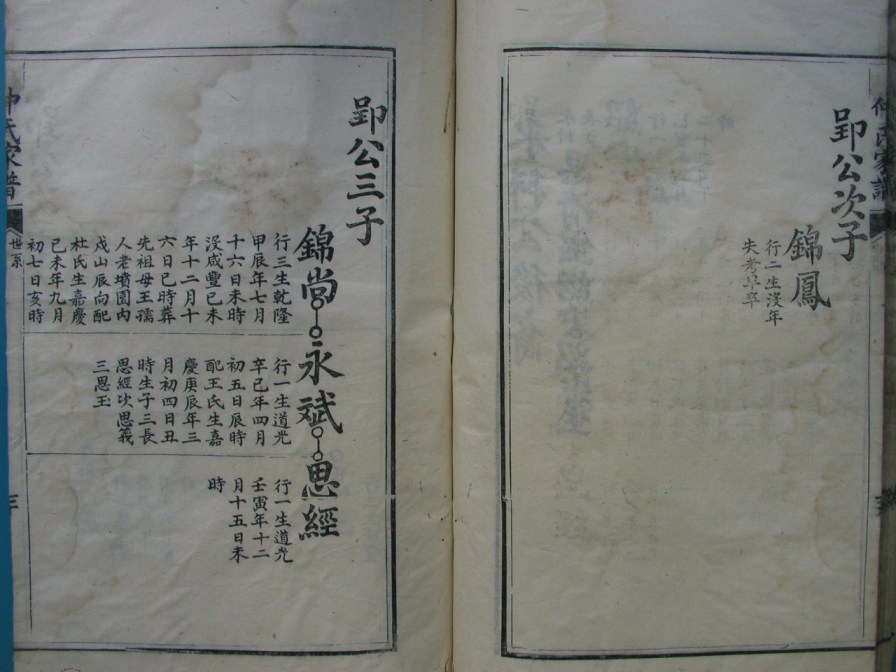 郢公次子
錦鳳
行二生沒年
失考早卒
郢公三子
錦嵩
行三生乾隆
甲辰年七月
十六日未時
沒咸豐己未
年十二月十
六日巳時葬
先祖母王孺
人老墳園內
戌山辰向配
杜氏生嘉慶
己未年九月
初七日亥時
永斌
行一生道光
辛巳年四月
初五日辰時
配王氏生嘉
慶庚辰年三
月初四日丑
時生子三長
思經次思義
三思玉
思經
行一生道光
壬寅年十二
月十五日未
時
仲氏家譜
世系